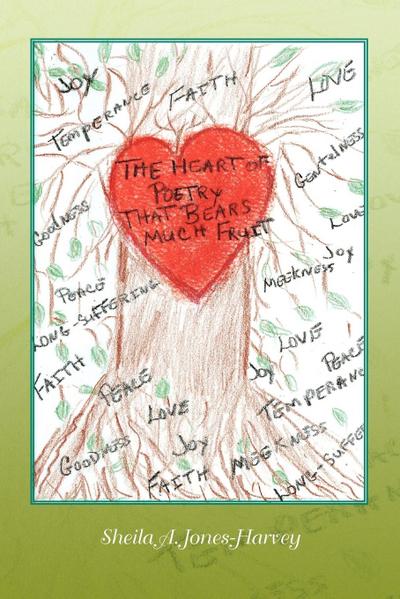 JOY
TEMPERANCE
FAITH
LOVE
GENTELNESS
THE HEART OF
POETRY
THAT BEARS
MUCH FRUIT
GOODNESS
LOVE
JOY
MEEKNESS
PEACE
LONG-SUFFERING
LOVE
PEACE
FAITH
PEACE
JOY
LOVE
TEMPERANC
JOY
GOODNESS
MEEKNESS
FAITH
LONG-SUFFE
Sheila A. Jones-Harvey